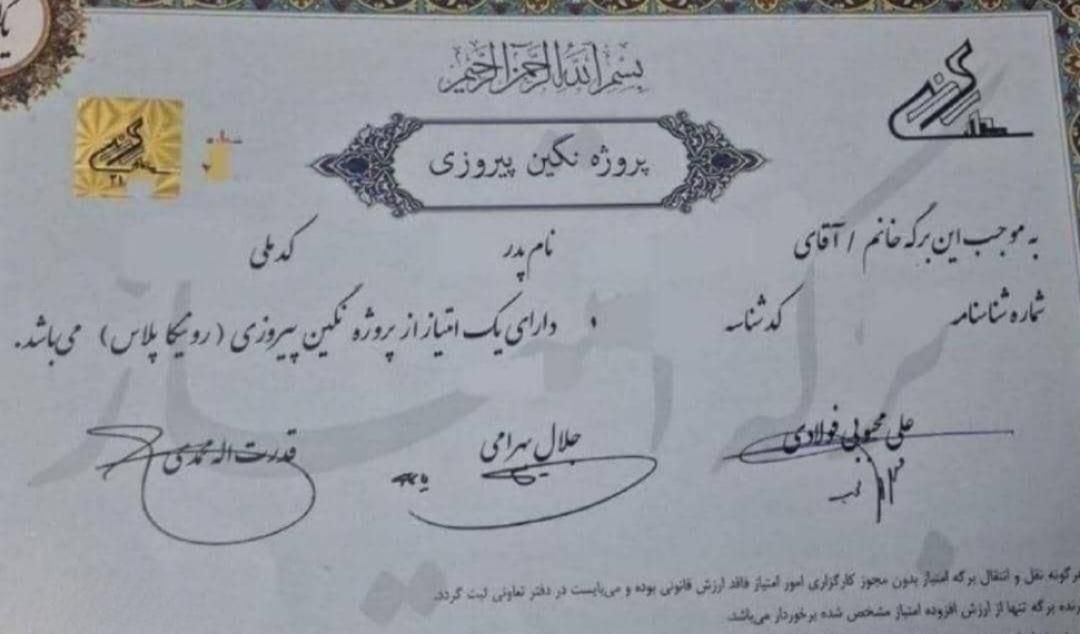 بسم الله الرحمن الرحیم
پروژه نگین پیروزی
به موجب این برگه خانم / آقای
نام پدر
کد ملی
شماره شناسنامه
کد شناسه
دارای یک امتیاز از پروژه نگین پیروزی (رومیکا پلاس) می‌باشد.
علی محبوبی فولادی
جلال بهرامی
قدرت اله محمدی
هرگونه نقل و انتقال برگه امتیاز بدون مجوز کارگزاری امور امتیاز فاقد ارزش قانونی بوده و می‌بایست در دفتر تعاونی ثبت گردد.
برگه تنها از ارزش افزوده امتیاز مشخص شده برخوردار می‌باشد.
برگه امتیاز